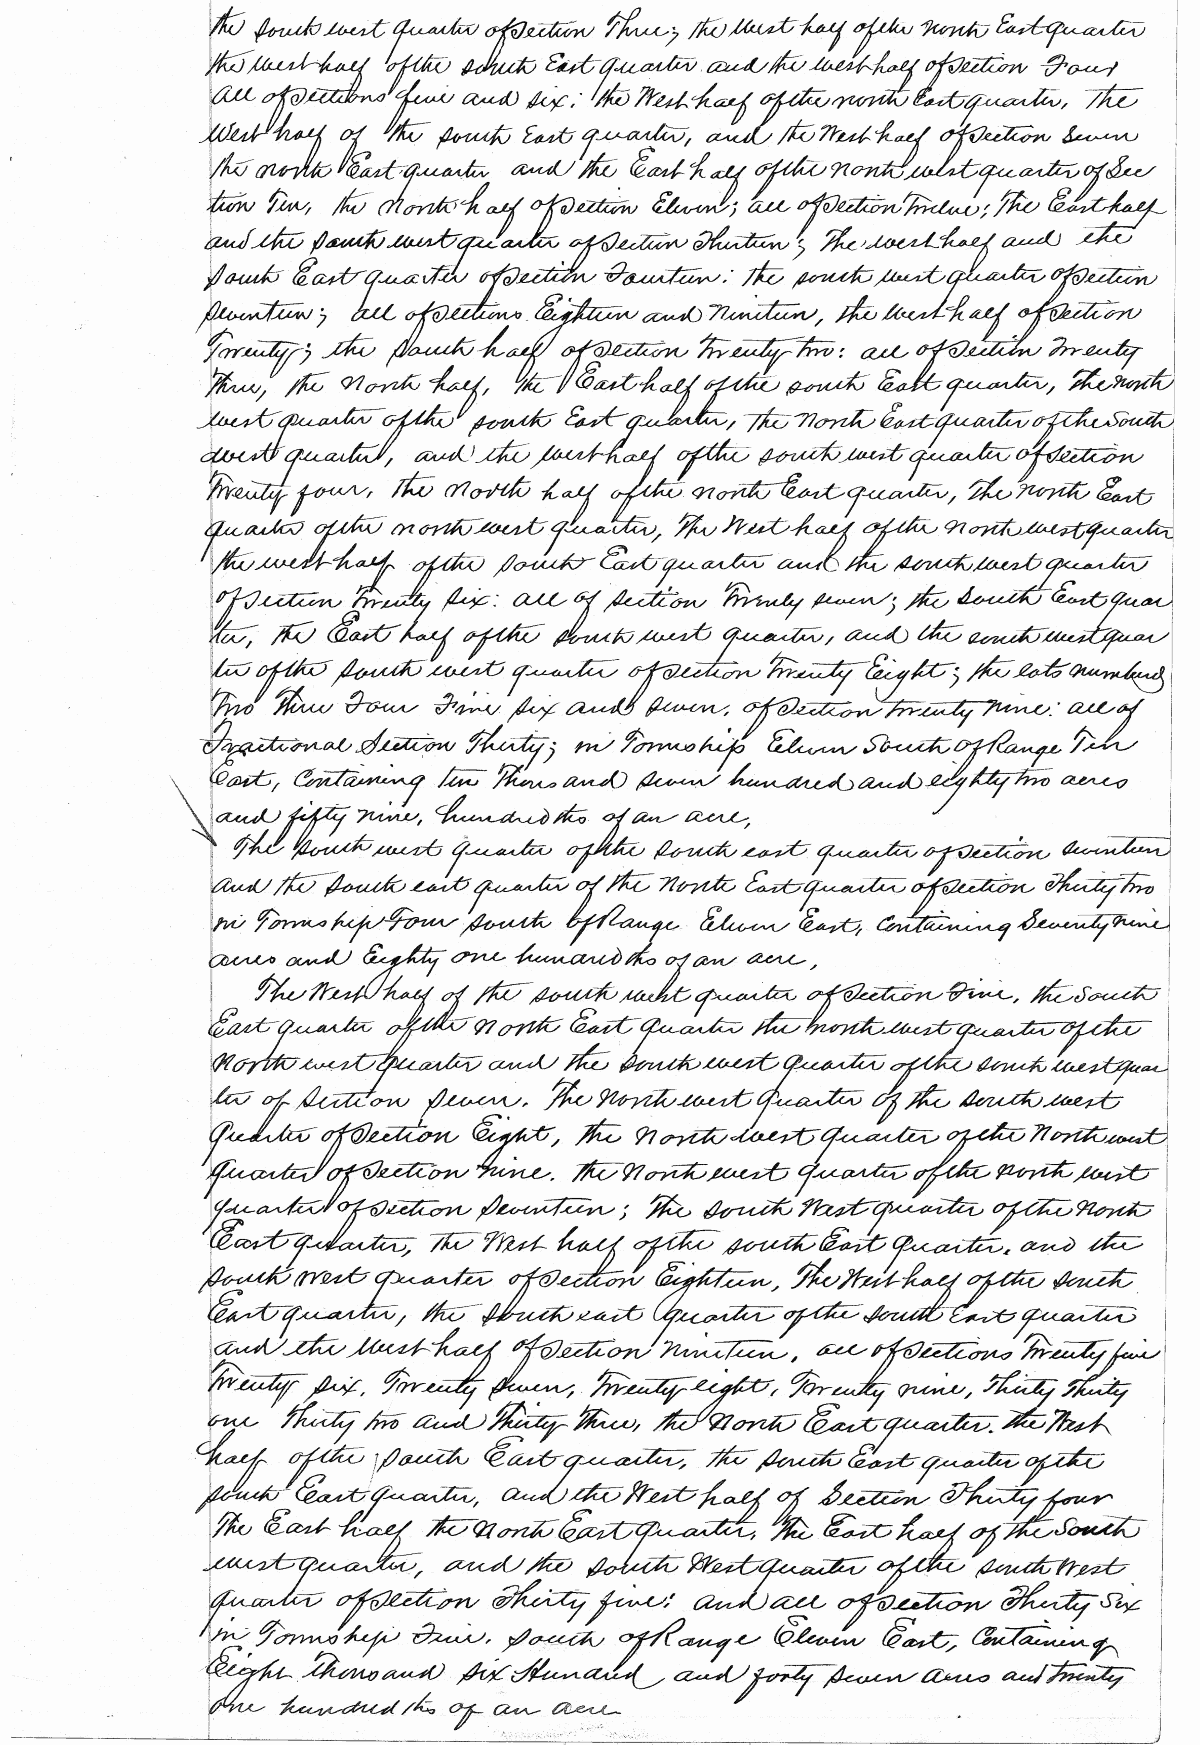 the South west quarter of Section Three; the West half of the North East quarter
the west half of the south East quarter and the west half of Section Four
all of Sections five and six; the West half of the north East quarter, the
West half of the south East quarter, and the West half of Section Seven
the north East quarter and the East half of the North west quarter of Sec
tion Ten, the North half of Section Eleven; all of Section Twelve; The East half
and the South west quarter of Section Thirteen; The west half and the
South East quarter of Section Fourteen: the south west quarter of Section
Seventeen; all of Sections Eighteen and Nineteen, the west half of Section
Twenty; the South half of Section Twenty two: all of Section Twenty
Three, the North half, the East half of the south East quarter, The north
west quarter of the south East quarter, the North East quarter of the South
west quarter, and the west half of the south west quarter of Section
Twenty four, the North half of the north East quarter, The north East
quarter of the north west quarter, The West half of the North west quarter
the west half of the South East quarter and the south west quarter
of Section Twenty Six: all of Section Twenty seven; the South East quar
ter, the East half of the south west quarter, and the south west quar
ter of the South west quarter of Section Twenty Eight; the lots numbered
Two Three Four Five six and seven, of Section twenty nine: all of
Fractional Section Thirty; in Township Eleven South of Range Ten
East, Containing ten Thousand seven hundred and eighty two acres
and fifty nine, hundredths of an acre,
The South west quarter of the south east quarter of Section Seventeen
and the South east quarter of the North East quarter of Section Thirty two
in Township Four south of Range Eleven East, Containing Seventy nine
acres and Eighty one hundredths of an acre,
The West half of the south west quarter of Section Five, the South
East quarter of the North East quarter the north west quarter of the
North west quarter and the South west quarter of the south west quar
ter of Section Seven. The North west quarter of the South west
Quarter of Section Eight, the North west quarter of the North west
quarter of Section nine. the North west quarter of the north west
quarter of Section Seventeen; The South West quarter of the North
East quarter, the West half of the south East Quarter, and the
South west quarter of Section Eighteen, The West half of the South
East quarter, the South east quarter of the South East quarter
and the West half of Section Nineteen, all of Sections Twenty five
Twenty six, Twenty seven, Twenty eight, Twenty nine, Thirty Thirty
one Thirty two and Thirty Three, the North East quarter. the West
half of the South East quarter, the South East quarter of the
south East Quarter, and the West half of Section Thirty four
The East half the North East Quarter, The East half of the South
west quarter, and the South West Quarter of the South West
quarter of Section Thirty five; and all of Section Thirty Six
in Township Five. South of Range Eleven East, Containing
Eight Thousand six Hundred and forty seven acres and twenty
one hundredths of an acre